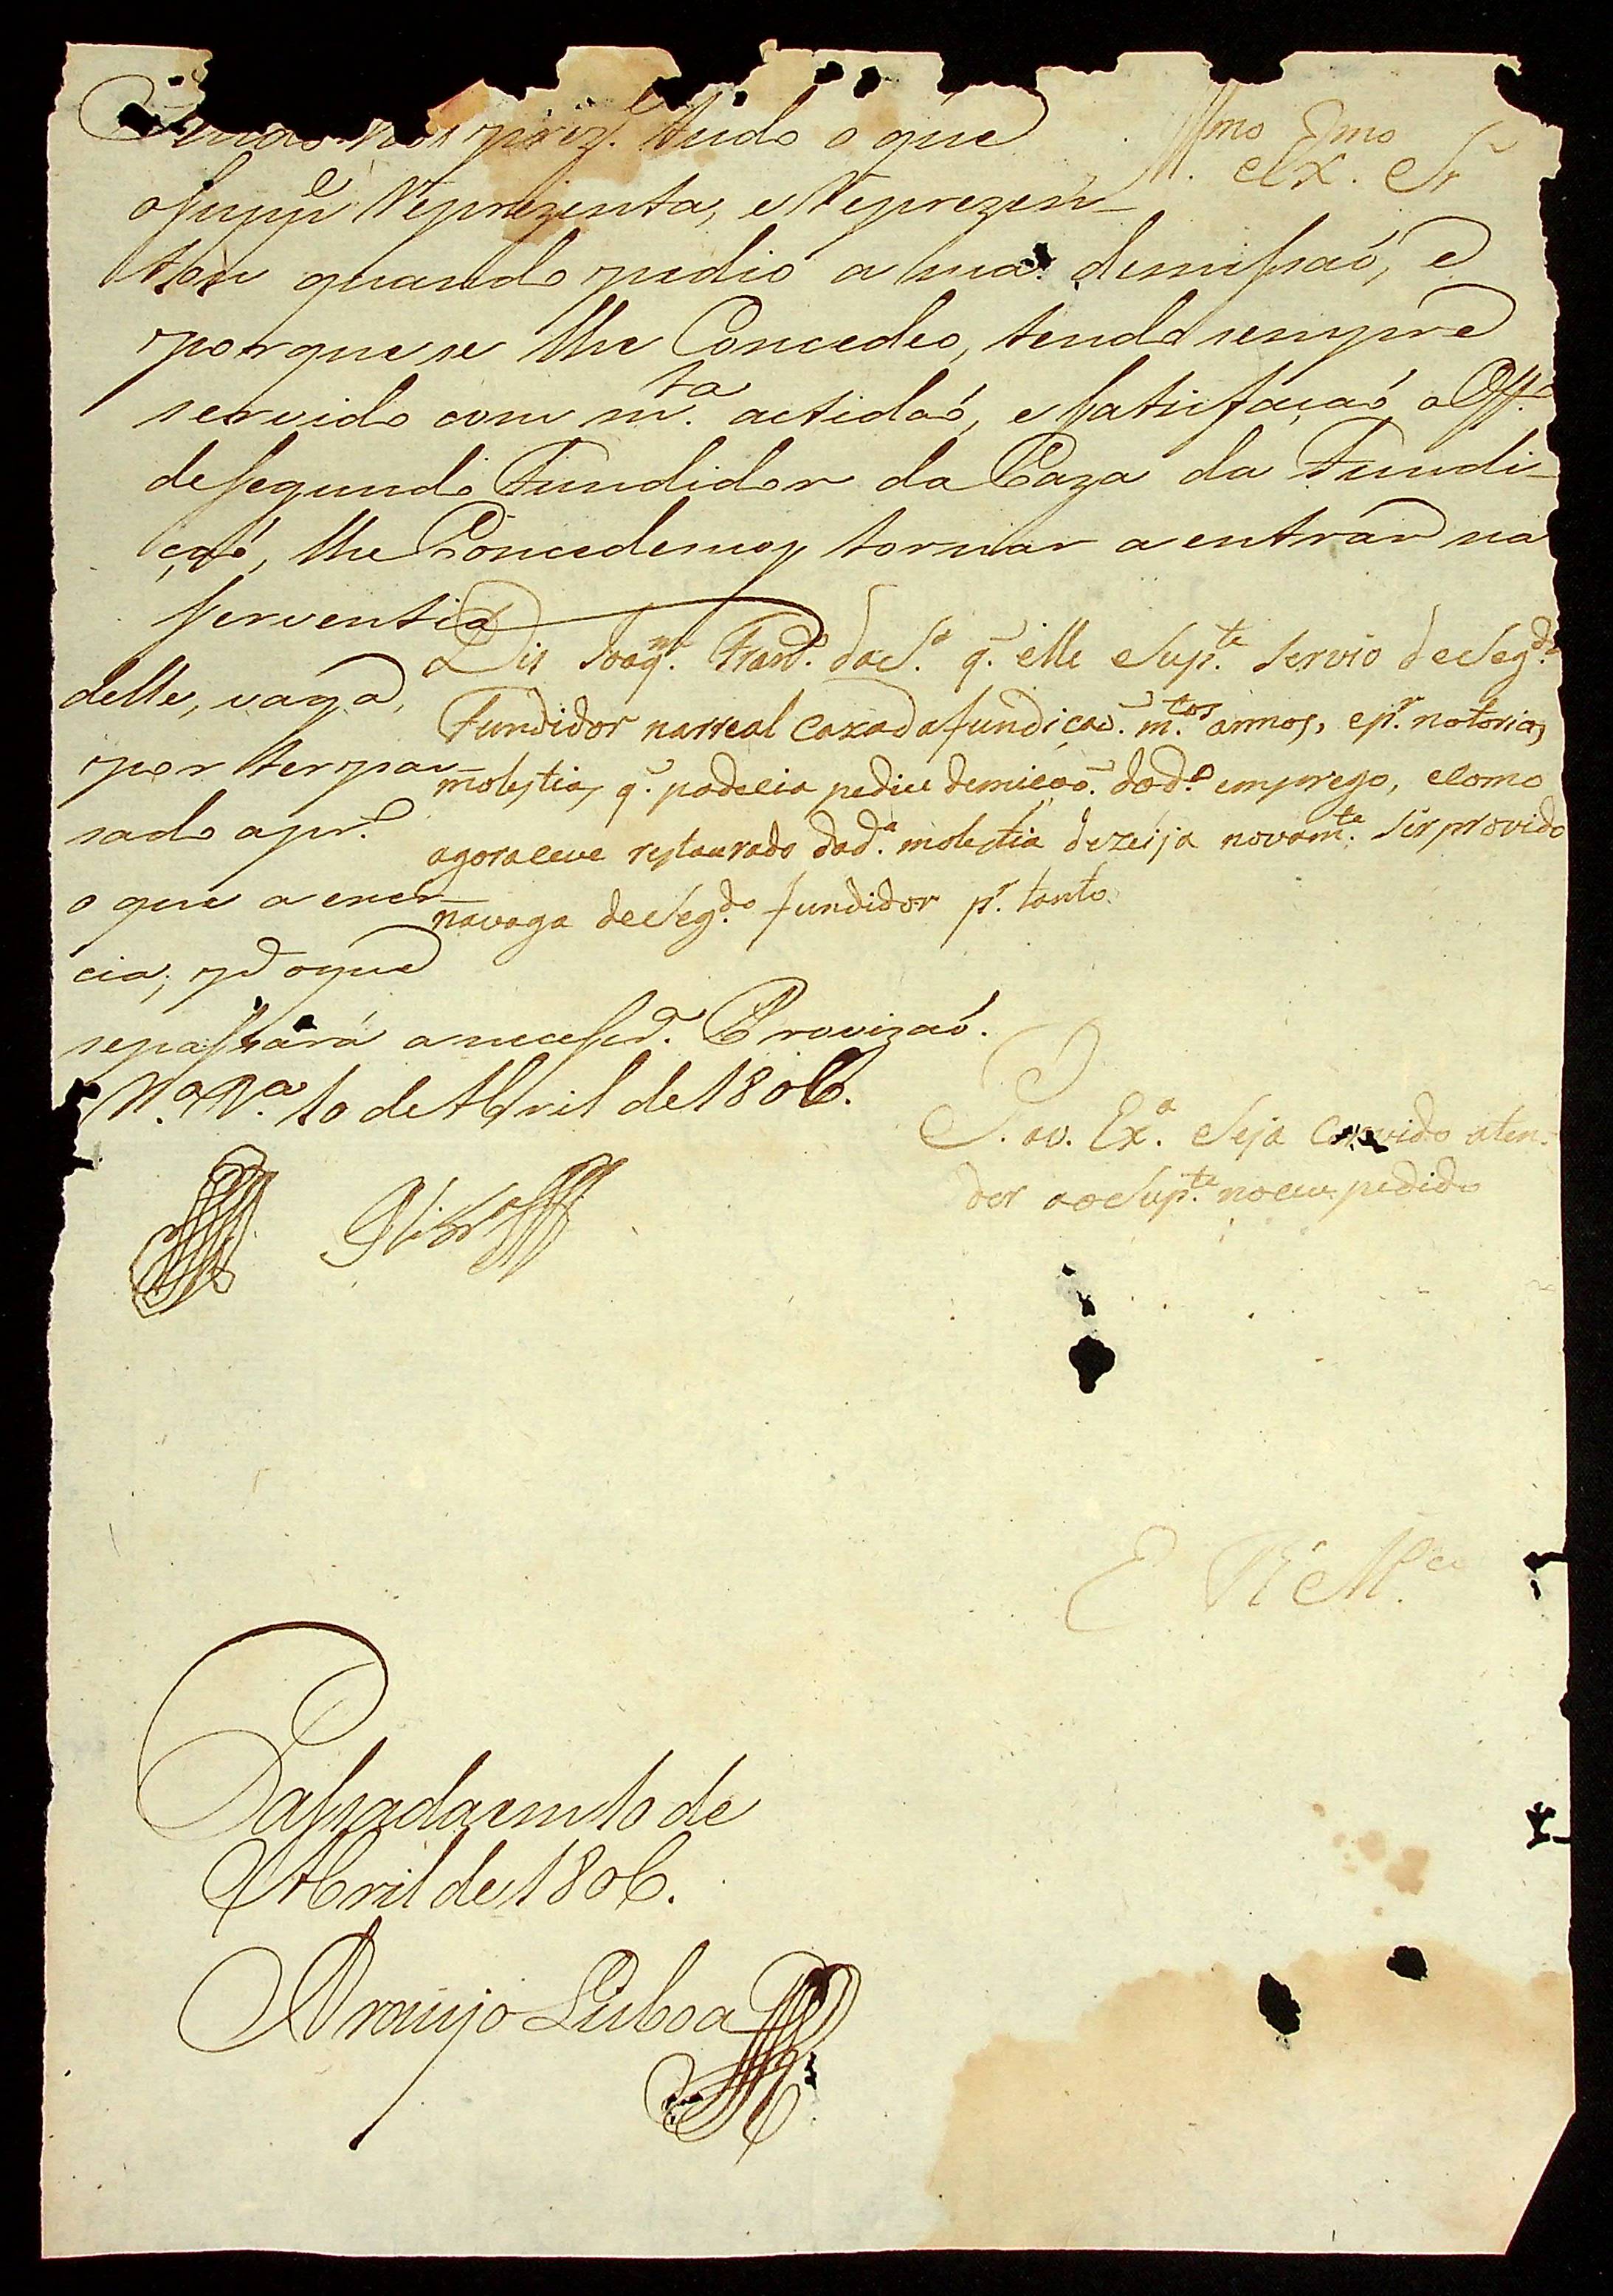 tudo o que
o supp.e Reprezenta, e Reprezen-
tou quando pedio a sua demissaó, e
porque se lhe Concedeo, tendo sempre
servido com m.ta actidaó, e satisfaçaó o Off.o
de segundo Fundidor da Caza da Fundi-
çaó, lhe Concedemos tornar a entrar na
serventia
delle, vaga,
por ter pas-
sado apr.o
o que a exer-
cia; pelo que
se passará a necess.a Provizaó.
V.a R.a 10 de Abril de 1806.
Ill.mo Ex.mo Sr
Dis Joaq.m Fran.co da S.a q. elle Sup.te Servio de Seg.do
Fundidor na rreal caza da fundiçaõ. m.tos annos, e pr. notorias
molestias q. padecia pedice demicaõ. do d.o emprego, e como
agora ceve restaurado da d.a molestia dezeija novam.te ser provido
na vaga de Seg.do fundidor pr. tanto.
P. a V. Ex.a Seja cervido aten-
der ao Sup.te no ceu pedido
E R M.ce
Passada em 10 de
Abril de 1806.
Araujo Lisboa